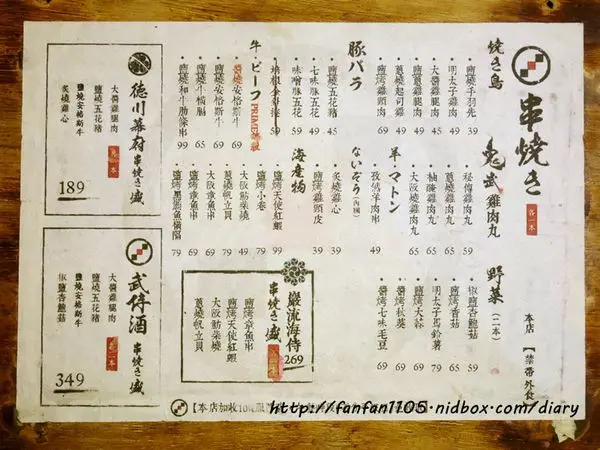 串焼き
各一本
本店【禁帶外食】
焼き鳥
鹽燒手羽先 39
明太子雞肉 49
大醬雞腿肉 45
鹽燒雞腿肉 45
蔥燒起司雞 49
鹽烤雞頸肉 69
豚バラ
鹽燒五花 45
七味豚五花 49
味噌豚五花 59
培根金針捲 59
牛・ビーフPRIME
醬燒安格斯牛 69
鹽燒安格斯牛 69
鹽燒牛橫膈 65
鹽燒和牛肋條串 99
鬼武雞肉丸
秘傳雞肉丸 59
蔥燒雞肉丸 65
柚醂雞肉丸 65
大阪燒雞肉丸 65
羊・マトン
孜然羊肉串 49
ないぞう(內臟)
炙燒雞心 39
鹽烤雞屁 39
海產物
鹽烤天使紅蝦 99
鹽烤小卷 77
大阪魷菜燒 49
蔥燒帆立貝 79
大阪章魚串 69
鹽烤章魚串 69
鹽烤黑鮪魚橫膈 79
野菜(二本)
椒鹽杏鮑菇 59
鹽烤香菇 65
明太子馬鈴薯 79
鹽烤大蒜 69
醬烤秋葵 69
醬烤七味毛豆 69
巖流海侍
串焼き盛
269
鹽烤章魚串
鹽烤天使紅蝦
大阪魷菜燒
蔥燒帆立貝
德川幕府
串焼き盛
大醬雞腿肉
鹽燒五花豬
鹽燒安格斯牛
炙燒雞心
189
武侍酒
串焼き盛
大醬雞腿肉
鹽燒五花豬
鹽燒安格斯牛
椒鹽杏鮑菇
349
【本店加收10%服
http://fanfan1105.nidbox.com/diary